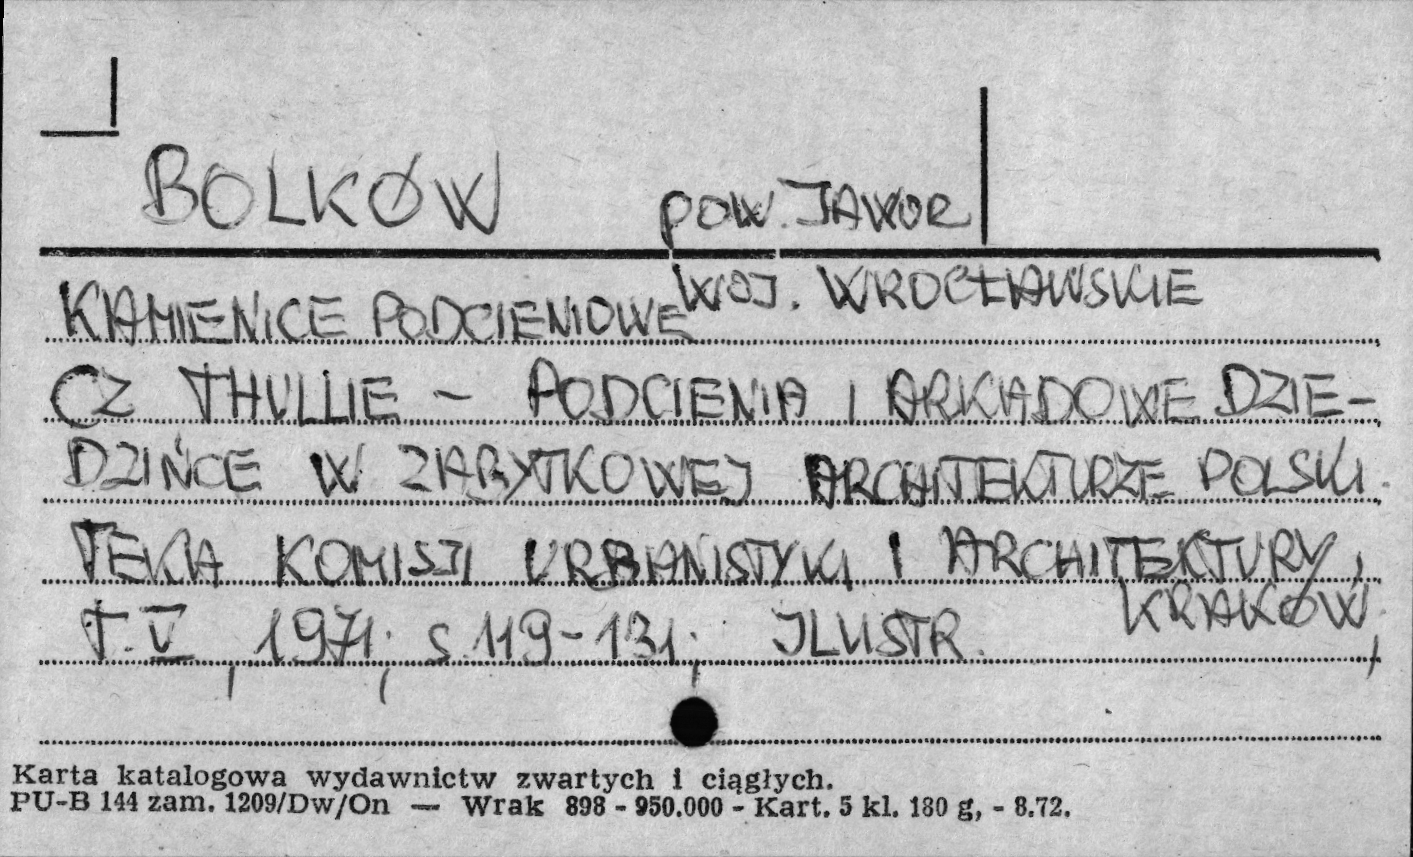 BOLKÓW pow. JAWOR
WOJ. WROCŁAWSKIE
KAMIENICE PODCIENIOWE
CZ THULLIE - PODCIENIA I ARKADOWE DZIE-
DZIŃCE W ZABYTKOWEJ ARCHITEKTURZE POLSKI.
TEKA KOMISJI URBANISTYKI I ARCHITEKTURY,
KRAKÓW,
T. V, 1971, S. 119-131, ILUSTR.
Karta katalogowa wydawnictw zwartych i ciągłych.
PU-B 144 zam. 1209/Dw/On — Wrak 898 - 950.000 - Kart. 5 kl. 180 g, - 8.72.